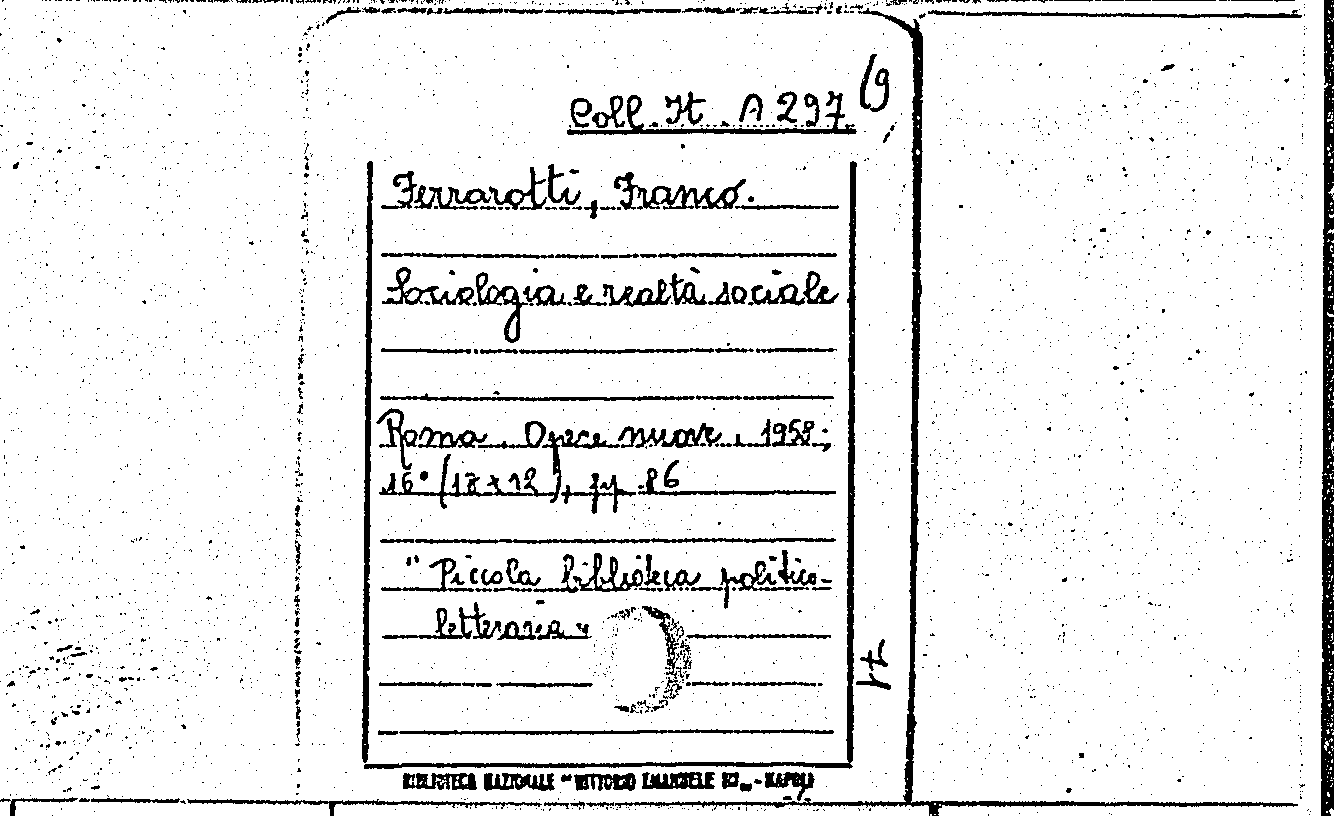 Coll. It. A 297 (9
Ferrarotti, Franco.
Sociologia e realtà sociale
Roma. Opere nuove. 1958;
16° (18 x 12), pp. 86
"Piccola biblioteca politico-
letteraria"
BIBLIOTECA NAZIONALE "VITTORIO EMANUELE III" - NAPOLI